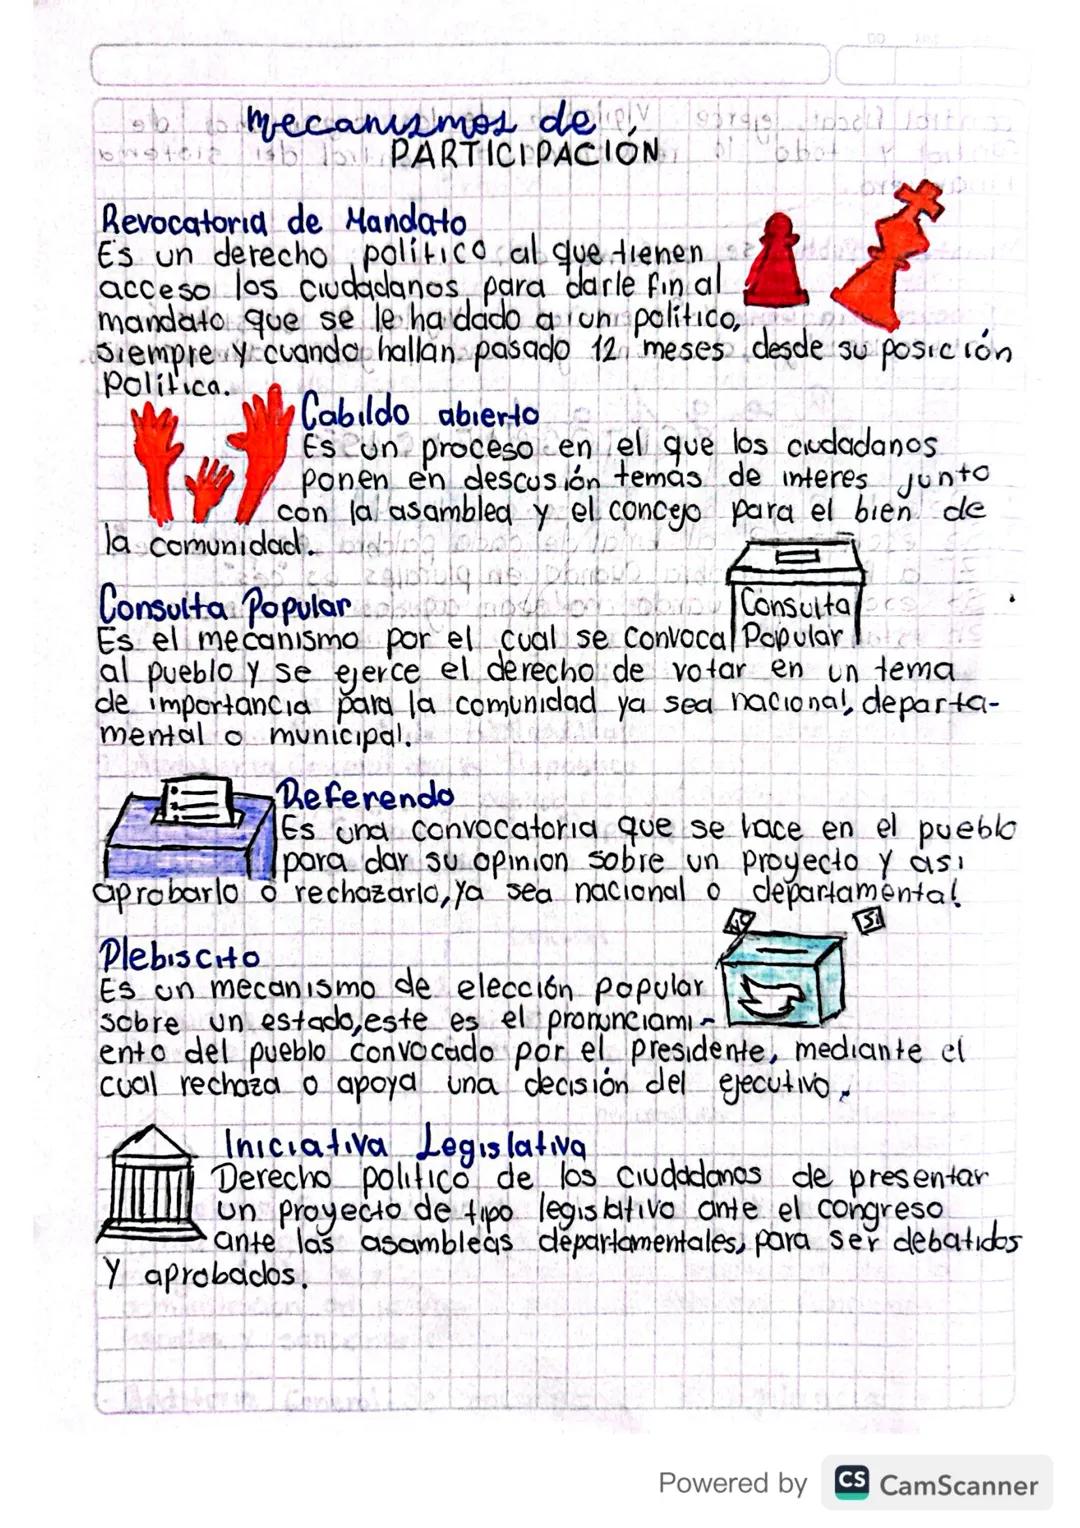 Mecanismos de
PARTICIPACIÓN
Revocatoria de Mandato
Es un derecho político al que tienen
acceso los ciudadanos para darle fin al
mandato que se le ha dado a un político,
siempre y cuando hallan pasado 12 meses desde su posición
Política.
Cabildo abierto
Es un proceso en el que los ciudadanos
ponen en descusión temas de interes junto
con la asamblea y el concejo para el bien de
la comunidad.
Consulta Popular
Consulta
Popular
Es el mecanismo por el cual se convoca
al pueblo y se ejerce el derecho de votar en un tema
de importancia para la comunidad ya sea nacional, departa-
mental o municipal.
Referendo
Es una convocatoria que se hace en el pueblo
para dar su opinion sobre un proyecto y asi
aprobarlo o rechazarlo, ya sea nacional o departamental.
NO
SI
Plebiscito
Es un mecanismo de elección popular
sobre un estado, este es el pronunciami-
ento del pueblo convocado por el presidente, mediante el
cual rechaza o apoya una decisión del ejecutivo.
Iniciativa Legislativa
Derecho político de los ciudadanos de presentar
un proyecto de tipo legislativo ante el congreso
ante las asambleas departamentales, para ser debatidos
Y aprobados.
Powered by CS CamScanner